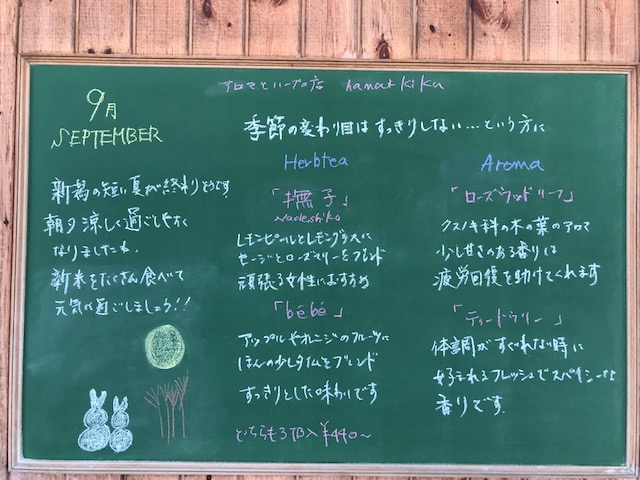 アロマとハーブの店 hanatkika
9月
SEPTEMBER
季節の変わり目はすっきりしない…という方に
新潟の短い夏が終わりそうです
朝夕涼しく過ごしやすく
なりましたね。
新米をたくさん食べて
元気に過ごしましょう!!
Herbtea
「撫子」
Nadeshiko
レモンピールとレモングラスに
セージとローズマリーをブレンド
頑張る女性におすすめ
「bébé」
アップルやオレンジのフルーツに
ほんの少しタイムをブレンド
すっきりとした味わいです
どちらも3TB入¥440〜
Aroma
「ローズウッドリーフ」
クスノキ科の木の葉のアロマ
少し甘さのある香りは
疲労回復を助けてくれます
「ティートゥリー」
体調がすぐれない時に
フレッシュでスパイシーな
香りです。